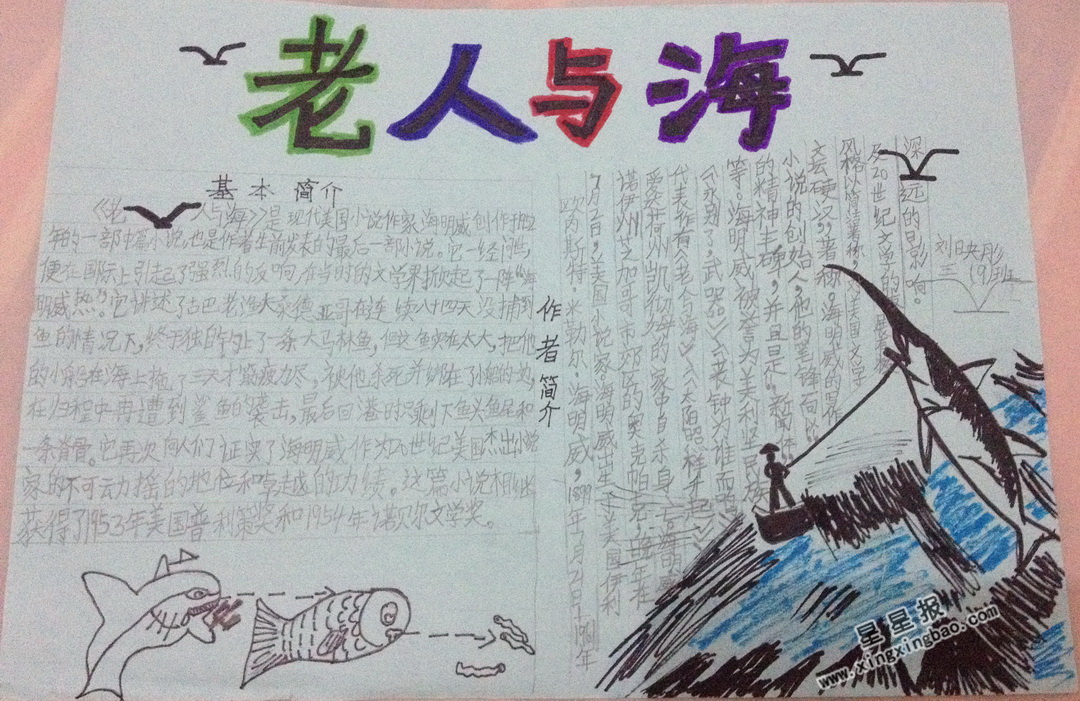 老人与海
基本简介
《老人与海》是现代美国小说作家海明威创作于1952
年的一部中篇小说,也是作者生前发表的最后一部小说。它一经问世,
便在国际上引起了强烈的反响,在当时的文学界掀起了一阵“海
明威热”。它讲述了古巴老渔夫桑德亚哥在连续八十四天没捕到
鱼的情况下,终于独自钓上了一条大马林鱼,但这鱼实在太大,把他
的小船在海上拖了三天才筋疲力尽,被他杀死并绑在了小船的
在归程中再遭到鲨鱼的袭击,最后回港时只剩下鱼头鱼尾和
一条脊骨。它再次向人们证实了海明威作为20世纪美国杰出小说
家的不可动摇的地位和卓越的功绩。这篇小说相继
获得了1953年美国普利策奖和1954年诺贝尔文学奖。
作者简介
欧内斯特·米勒尔·海明威,1899年7月21日-1961年
7月2日,美国小说家。海明威出生于美国伊利
诺伊州芝加哥市郊区的奥克帕克,晚年在
爱荷州凯彻姆的家中自杀身亡。
代表作有《老人与海》《太阳照样升起》
《永别了,武器》《丧钟为谁而鸣》
等。海明威被誉为美利坚民族
的精神丰碑,并且是“新闻体”
小说的创始人,他的笔锋向以“
文坛硬汉”著称。海明威的写作
风格以简洁著称,对美国文学
及20世纪文学的
深远的影响。
刘映彤
三(9)班
星星报
www.xingxingbao.com